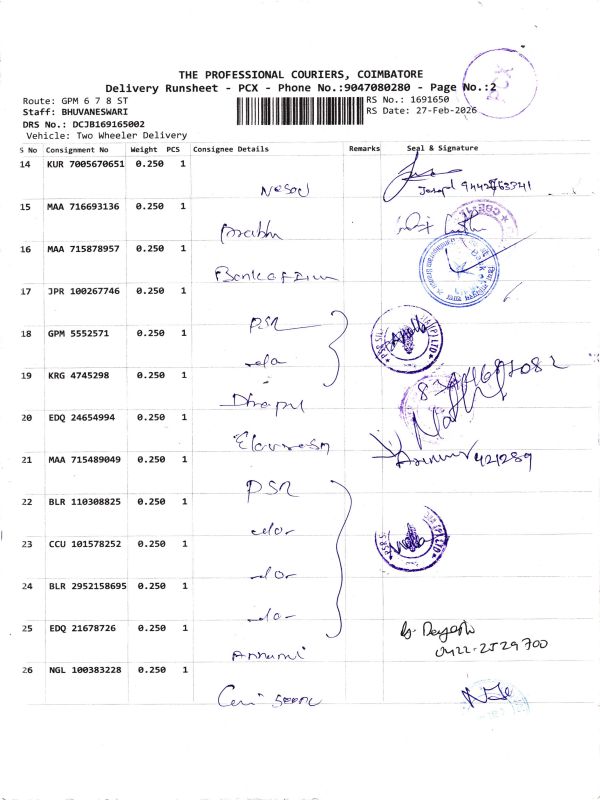 THE PROFESSIONAL COURIERS, COIMBATORE
Delivery Runsheet - PCX - Phone No.:9047080280 - Page No.:2
Route: GPM 6 7 8 ST
RS No.: 1691650
Staff: BHUVANESWARI
RS Date: 27-Feb-2026
DRS No.: DCJB169165002
Vehicle: Two Wheeler Delivery
S No Consignment No Weight PCS Consignee Details Remarks Seal & Signature
14 KUR 7005670651 0.250 1
15 MAA 716693136 0.250 1
Prabhu
16 MAA 715878957 0.250 1
17 JPR 100267746 0.250 1
PSR
18 GPM 5552571 0.250 1
-do-
19 KRG 4745298 0.250 1
20 EDQ 24654994 0.250 1
21 MAA 715489049 0.250 1
421289
PSR
22 BLR 110308825 0.250 1
-do-
23 CCU 101578252 0.250 1
-do-
24 BLR 2952158695 0.250 1
-do-
25 EDQ 21678726 0.250 1
0422-2529700
26 NGL 100383228 0.250 1